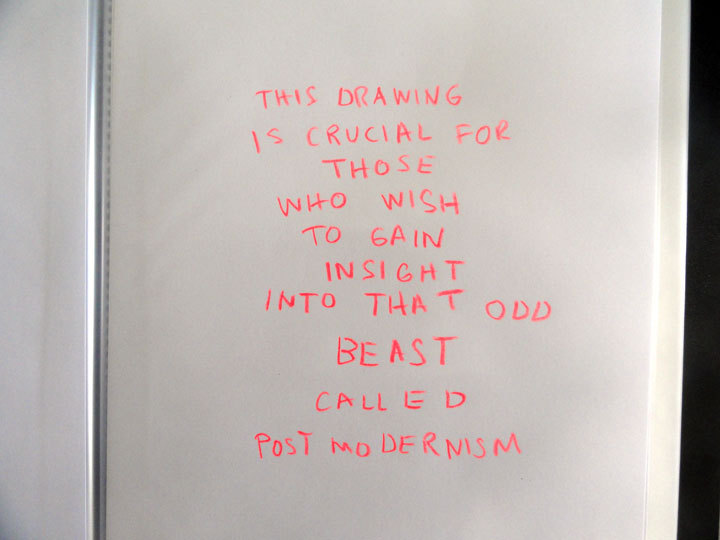 THIS DRAWING
IS CRUCIAL FOR
THOSE
WHO WISH
TO GAIN
INSIGHT
INTO THAT ODD
BEAST
CALLED
POST MODERNISM